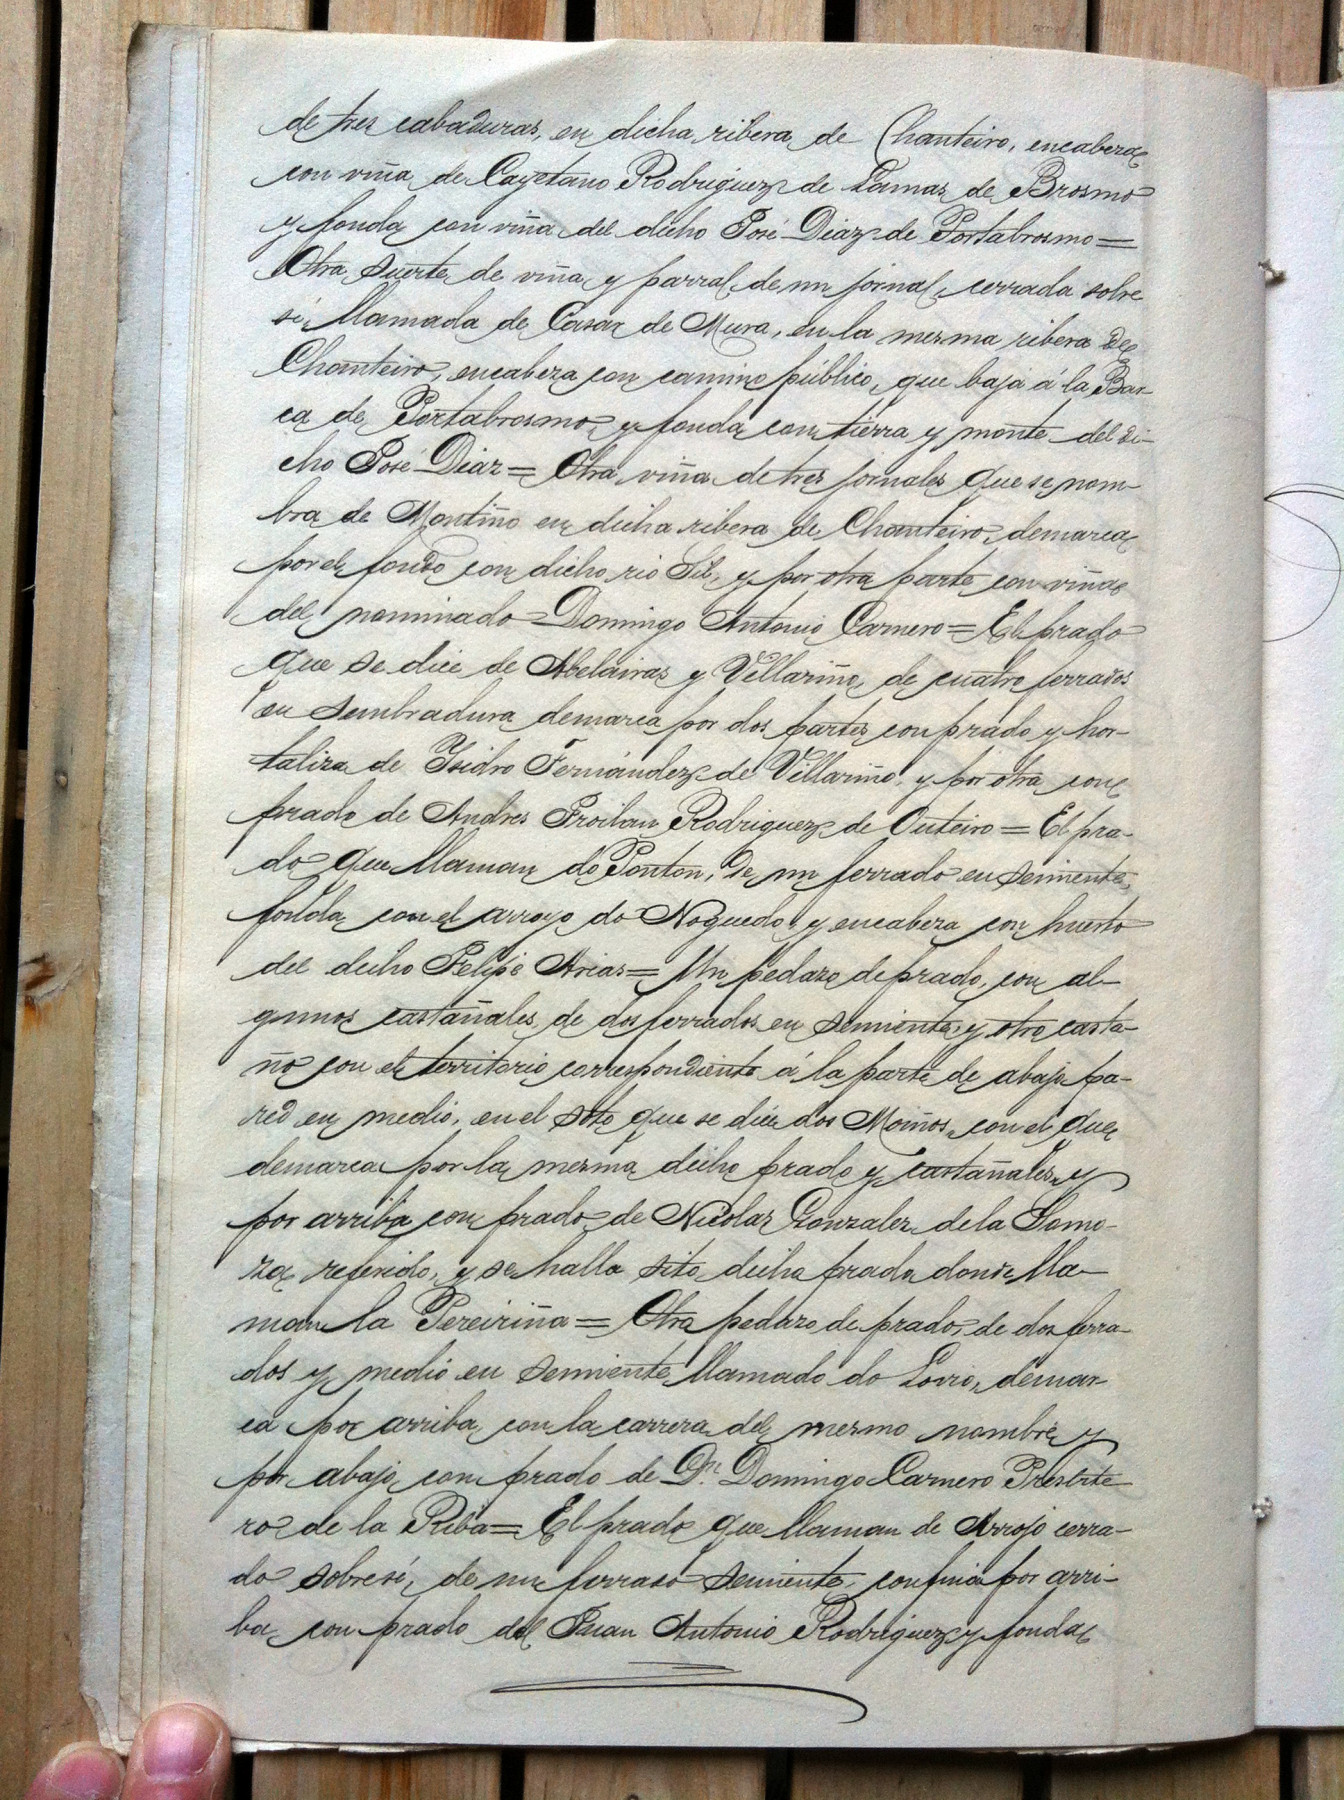 de tres cabaduras, en dicha ribera de Chanteiro, encabeza
con viña de Cayetano Rodriguez de Lamas de Brosmo
y fonda con viña del dicho José Diaz de Portabrosmo =
Otra suerte de viña y parral de un jornal, cerrada sobre
si, llamada de Casar de Mura, en la mesma ribera de
Chanteiro, encabeza con camino público, que baja á la Bar-
ca de Portabrosmo, y fonda con tierra y monte del di-
cho José Diaz = Otra viña de tres jornales que se nom-
bra de Montiño en dicha ribera de Chanteiro, demarca
por el fondo con dicho rio Sil, y por otra parte con viña
del nominado Domingo Antonio Carnero = El prado
que se dice de Abelairas y Villariño, de cuatro ferrados
en sembradura demarca por dos partes con prado y hor-
taliza de Ysidro Fernández de Villariño, y por otra con
prado de Andres Froilan Rodriguez de Outeiro = El pra-
do que llaman do Ponton, de un ferrado en semiente,
fonda con el arroyo do Noguedo, y encabeza con huerto
del dicho Felipe Arias = Un pedazo de prado, con al-
gunos castañales, de dos ferrados en semiente, y otro casta-
ño con el territorio correspondiente á la parte de abajo pa-
red en medio, en el soto que se dice dos Moiños, con el que
demarca por la mesma dicho prado y castañales, y
por arriba con prado de Nicolas Gonzalez de la Somo-
za referido, y se halla sito dicho prado donde lla-
man la Pereiriña = Otro pedazo de prado, de dos ferra-
dos y medio en semiente llamado do Lovio, demar-
ca por arriba con la carrera del mesmo nombre y
por abajo con prado de Dn. Domingo Carnero Presbite
ro de la Riba = El prado que llaman de Arrojo cerra-
do sobre sí, de un ferrado semiente, confina por arri-
ba con prado del Juan Antonio Rodriguez y fonda